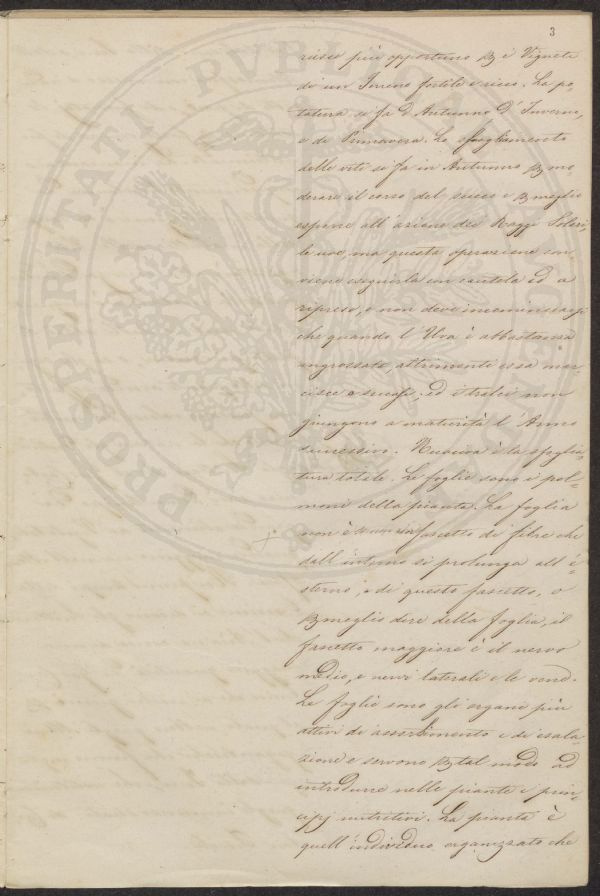 3
riesce più opportuno p i Vigneti
di un Terreno fertile e ricco. La po,
tatura si fa d'Autunno d'Inverno,
e di Primavera. Lo sfogliamento
delle viti si fa in Autunno p mo=
derare il corso del succo e p meglio
esporre all'azione dei Raggi Solari,
le uve, ma questa operazione con,
viene eseguirla con cautela ed a
riprese, e non deve incominciarsi
che quando l'Uva è abbastanza
ingrossata, altrimenti essa mar=
cisce o , ed i tralci non
giungono a maturità l'Anno
successivo. Nuociva è la sfoglia,
tura totale. Le foglie sono i pol=
moni della pianta. La foglia
non è fascetto di fibre che
dall'interno si prolunga all'e=
sterno, e di questo fascetto, o
p meglio dire della foglia, il
fascetto maggiore è il nervo
medio, e nervi laterali e le vene.
Le foglie sono gli organi più
attivi di assorbimento e di esala,
zione e servono p tal modo ad
introdurre nelle piante i prin=
cipj nutritivi. La pianta è
quell'individuo organizzato che
PROSPERITATI PVBLICAE